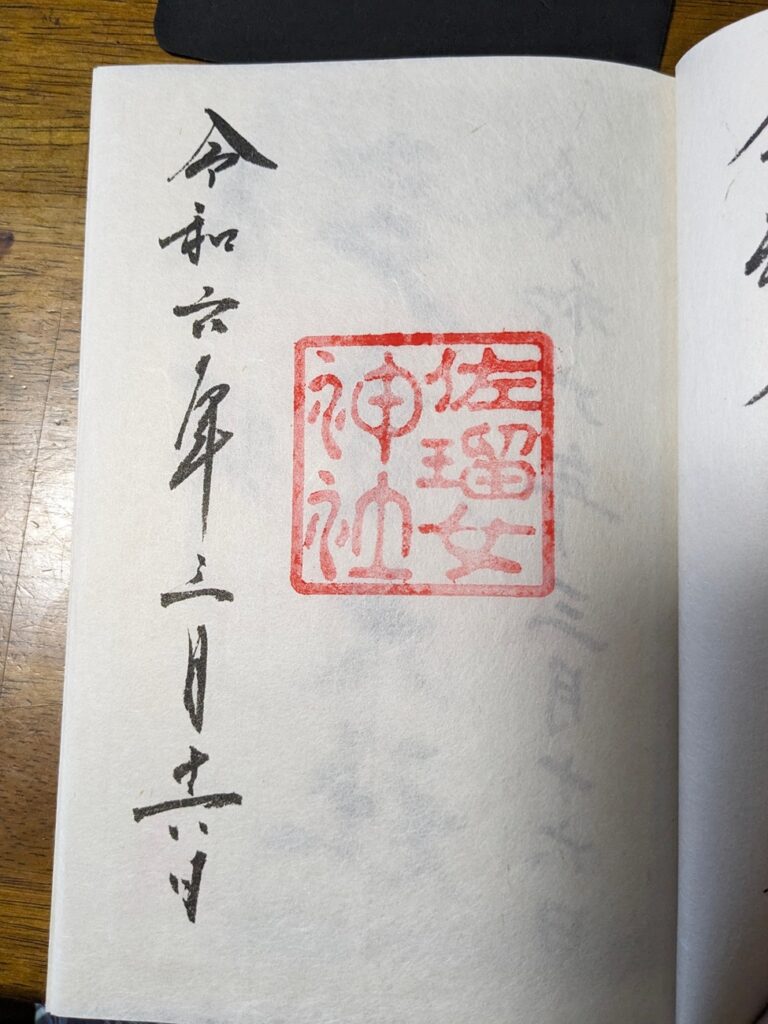 佐瑠女
神社
令和六年三月十六日